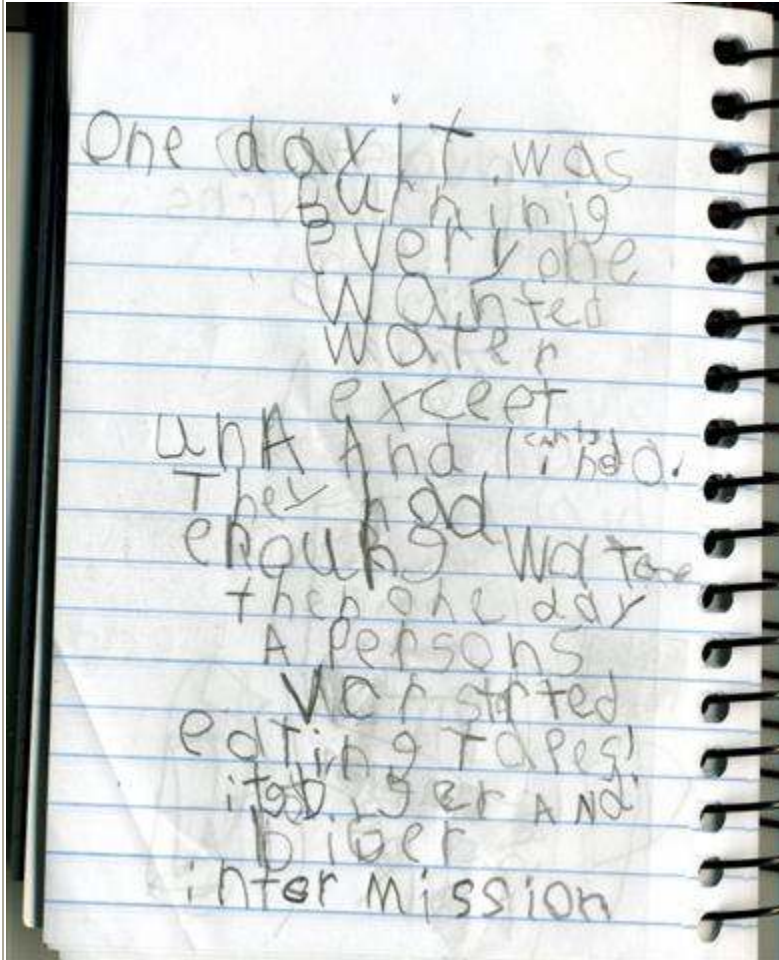 One day it was
burninig
everyone
wanted
water
except
unA And linda.
They had
enouhg wat
then one day
A Persons
Var started
eating tapes!
it gb ger AND
biger
inter Mission